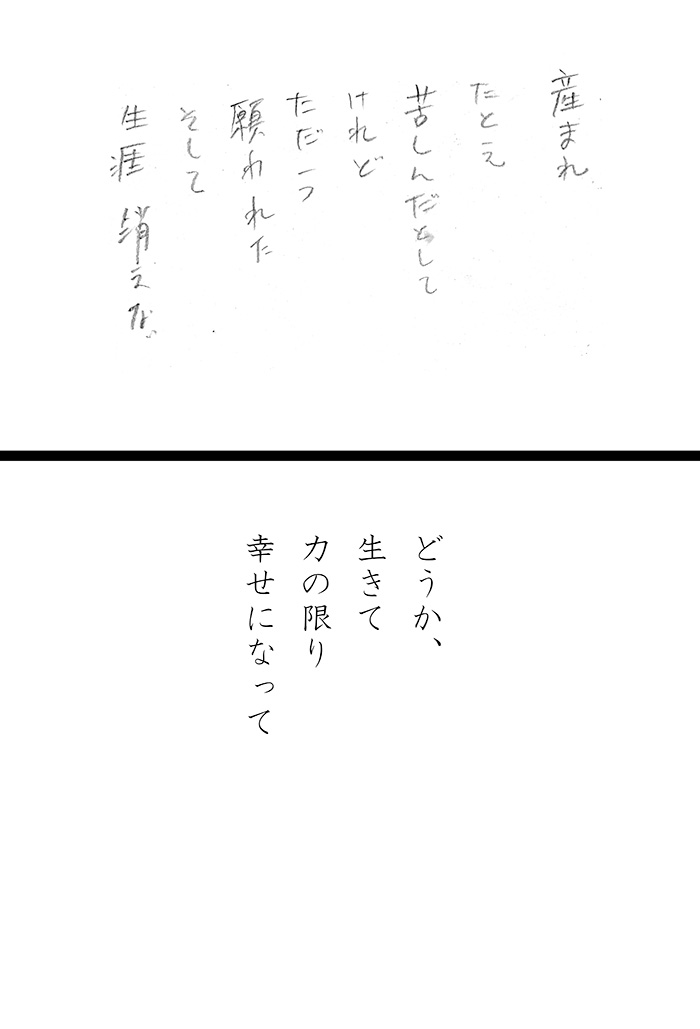 産まれ
たとえ
苦しんだとして
けれど
ただ一つ
願われた
そして
生涯 消えな
どうか、
生きて
力の限り
幸せになって